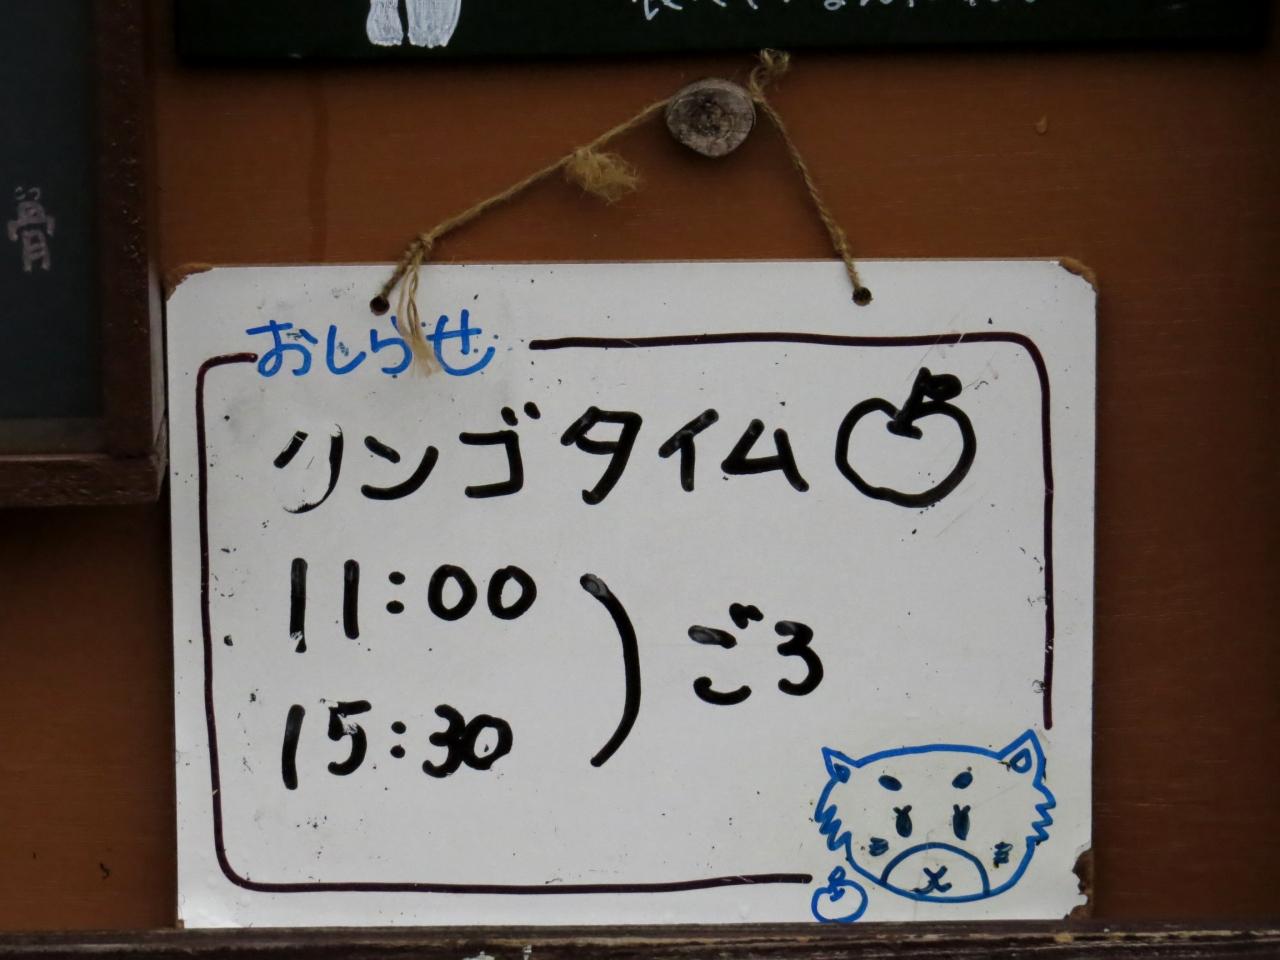 骨
おしらせ
リンゴタイム
11:00
15:30
ごろ